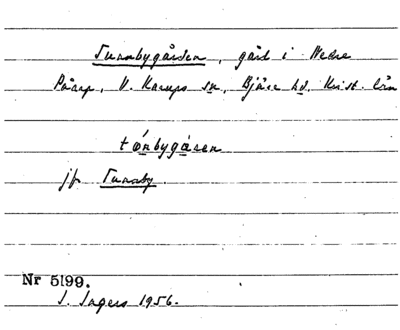 Tunnbygården, gård i Nedre
Påarp, V. Karups sn, Bjäre hd. Krist. län
tǿnbygåren
jfr Tunnby.
Nr 5199.
I. Ingers 1956.